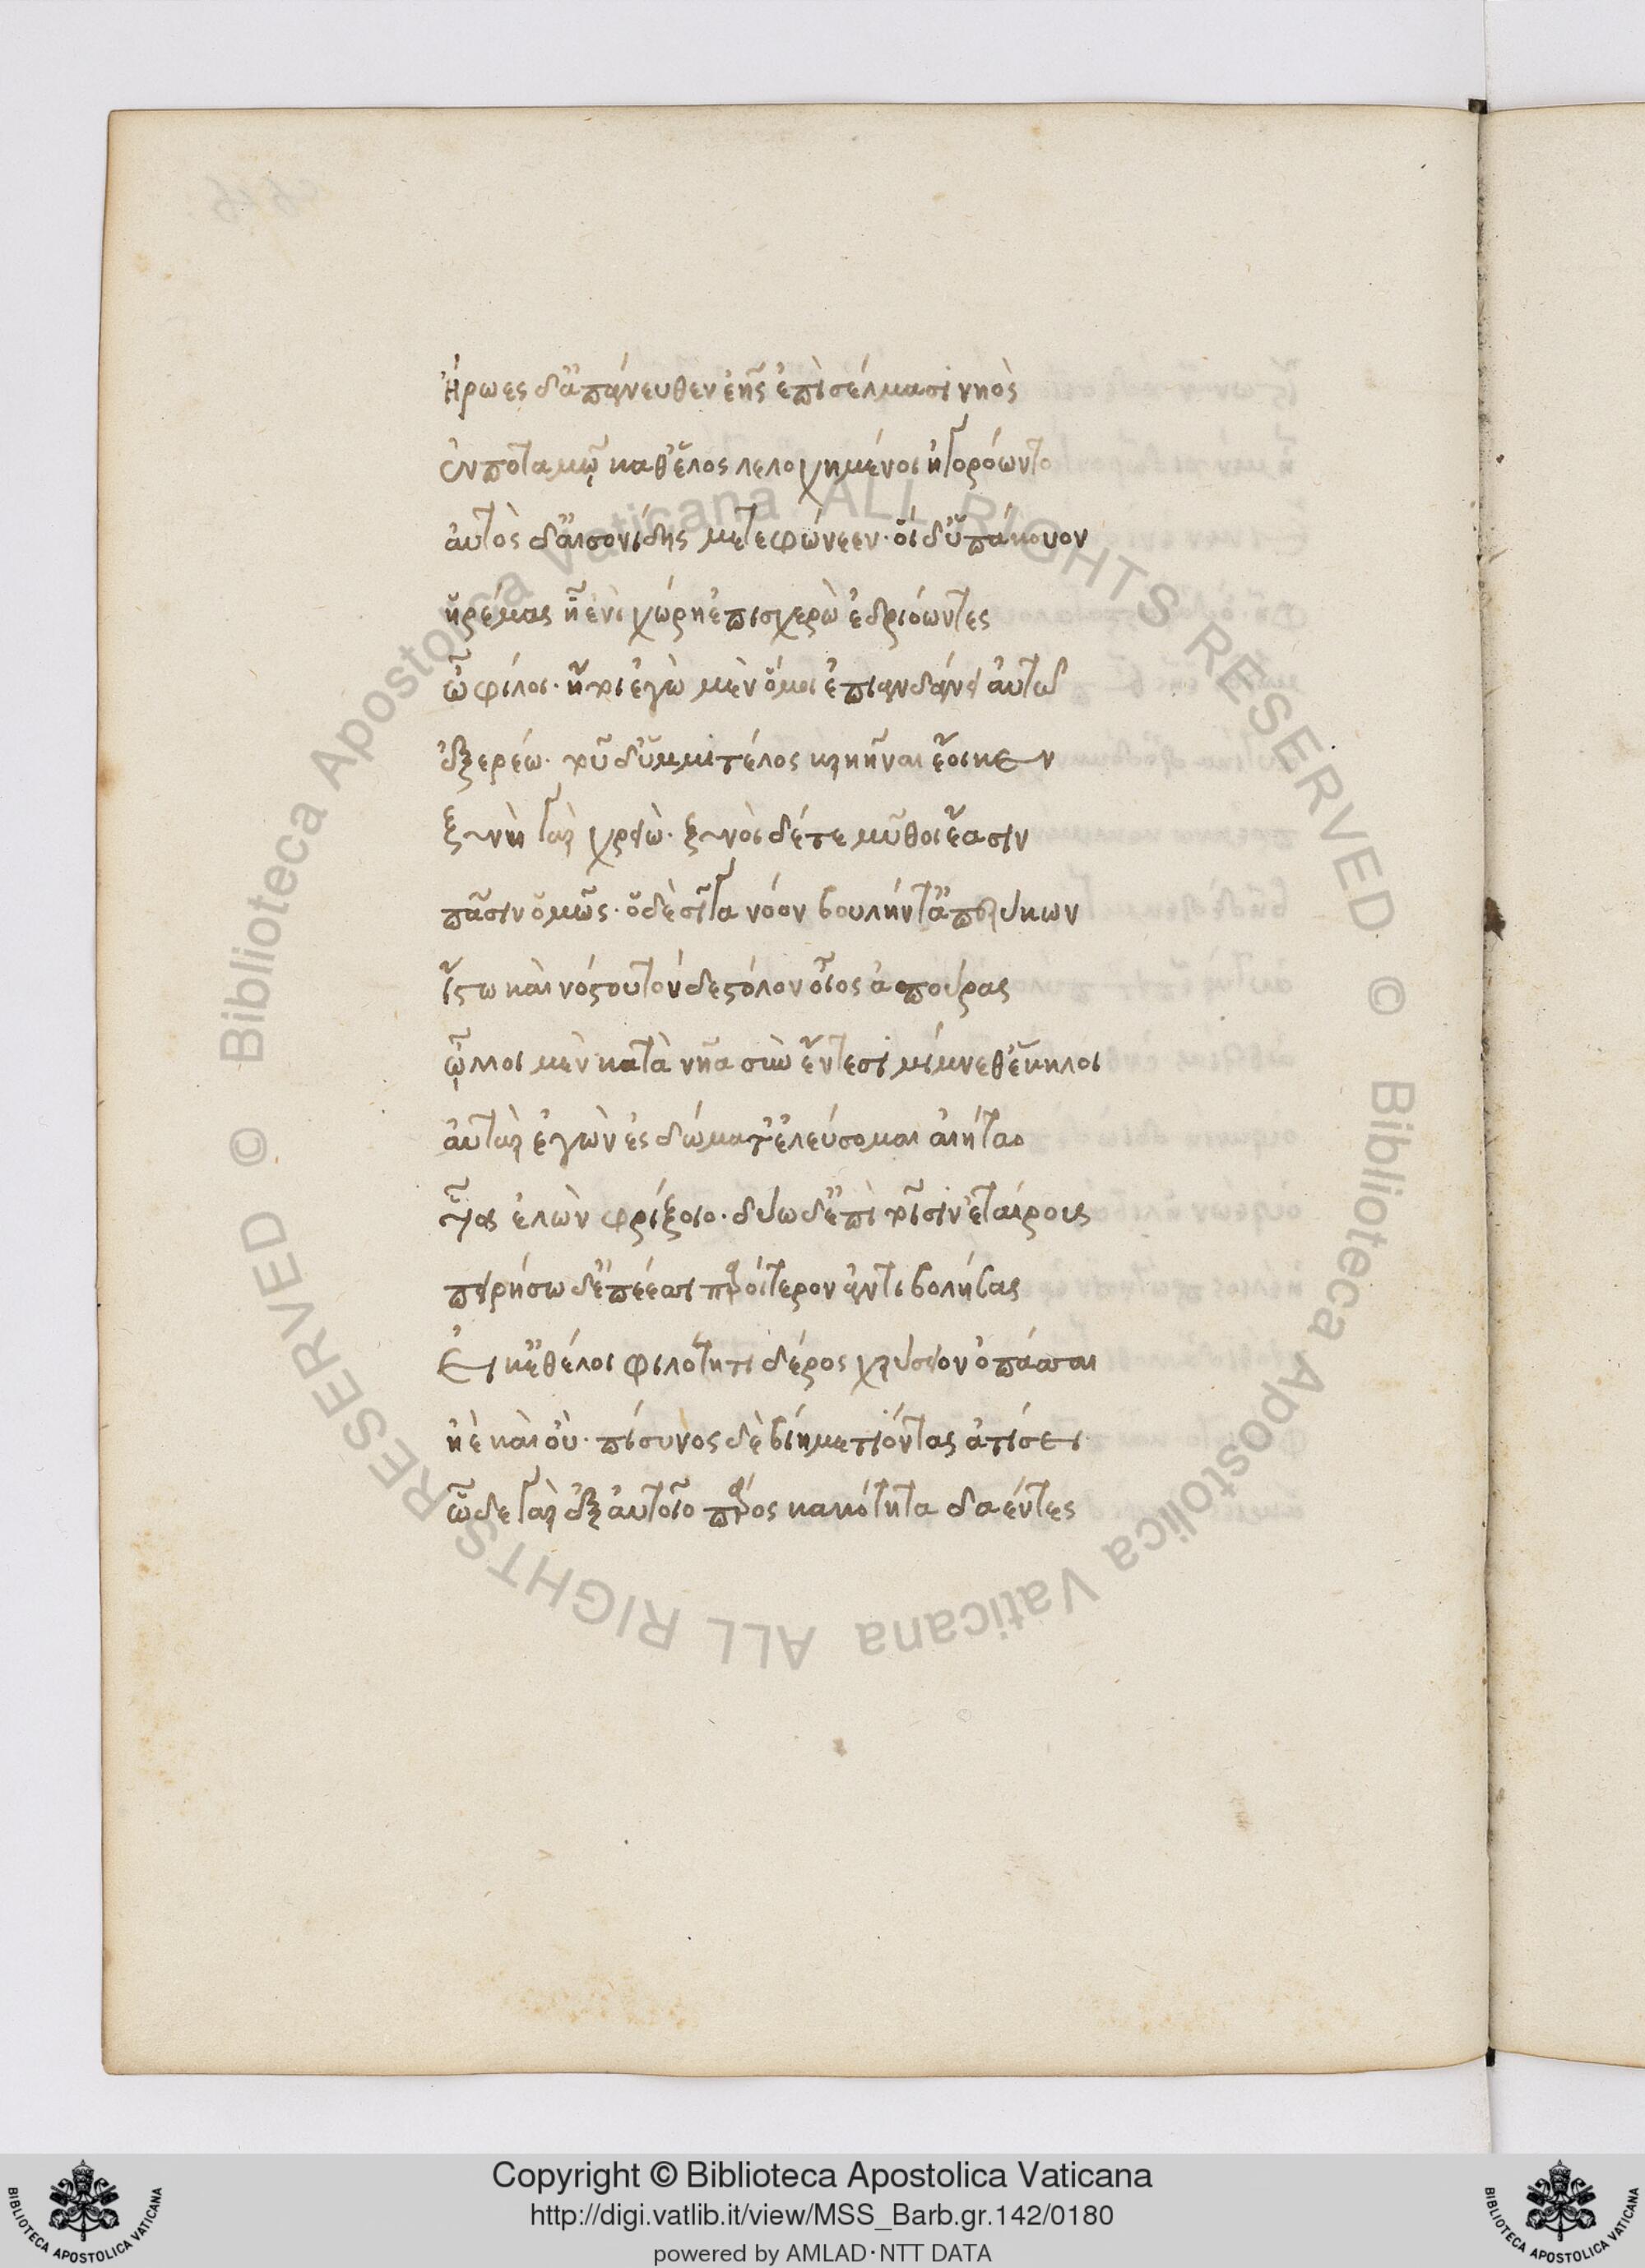 Ἥρωες δ' ἀπάνευθεν ἑῆς ἐπὶ σέλμασι νηὸς
ἐν ποταμῷ καθ' ἕλος λελοχημένοι ἠγορόωντο
αὐτὸς δ' αἰσονίδης μετεφώνεεν· οἱ δ' ὑπάκουον
ἠρέμας ᾗ ἐνὶ χώρῃ ἐπισχερὼ ἑδριόωντες
ὦ φίλοι· ἤτοι ἐγὼ μὲν ὅ μοι ἐπιανδάνει αὐτῷ
ἐξερέω· τοῦ δ' ὔμμι τέλος κρηῆναι ἔοικεν
ξυνὴ γὰρ χρειὼ· ξυνοὶ δέ τε μῦθοι ἔασιν
πᾶσιν ὁμῶς· ὁ δὲ σῖγα νόον βουλήν τ' ἀπερύκων
ἴστω καὶ νόστου τόνδε στόλον οἶος ἀπούρας
ὦλλοι μὲν κατὰ νῆα σὺν ἔντεσι μίμνεθ' ἕκηλοι
αὐτὰρ ἐγὼν ἐς δώματ' ἐλεύσομαι αἰήταο
υἷας ἑλὼν φρίξοιο· δύω δ' ἐπὶ τοῖσιν ἑταίρους
πειρήσω δ' ἐπέεσσι παροίτερον ἀντιβολήσας
Εἴ κ' ἐθέλοι φιλότητι δέρος χρύσειον ὀπάσσαι
ἠὲ καὶ οὐ· πίσυνος δὲ βίῃ μετιόντας ἀτίσει
ὧδε γὰρ ἐξ αὐτοῖο πάρος κακότητα δαέντες
Copyright © Biblioteca Apostolica Vaticana
http://digi.vatlib.it/view/MSS_Barb.gr.142/0180
powered by AMLAD·NTT DATA